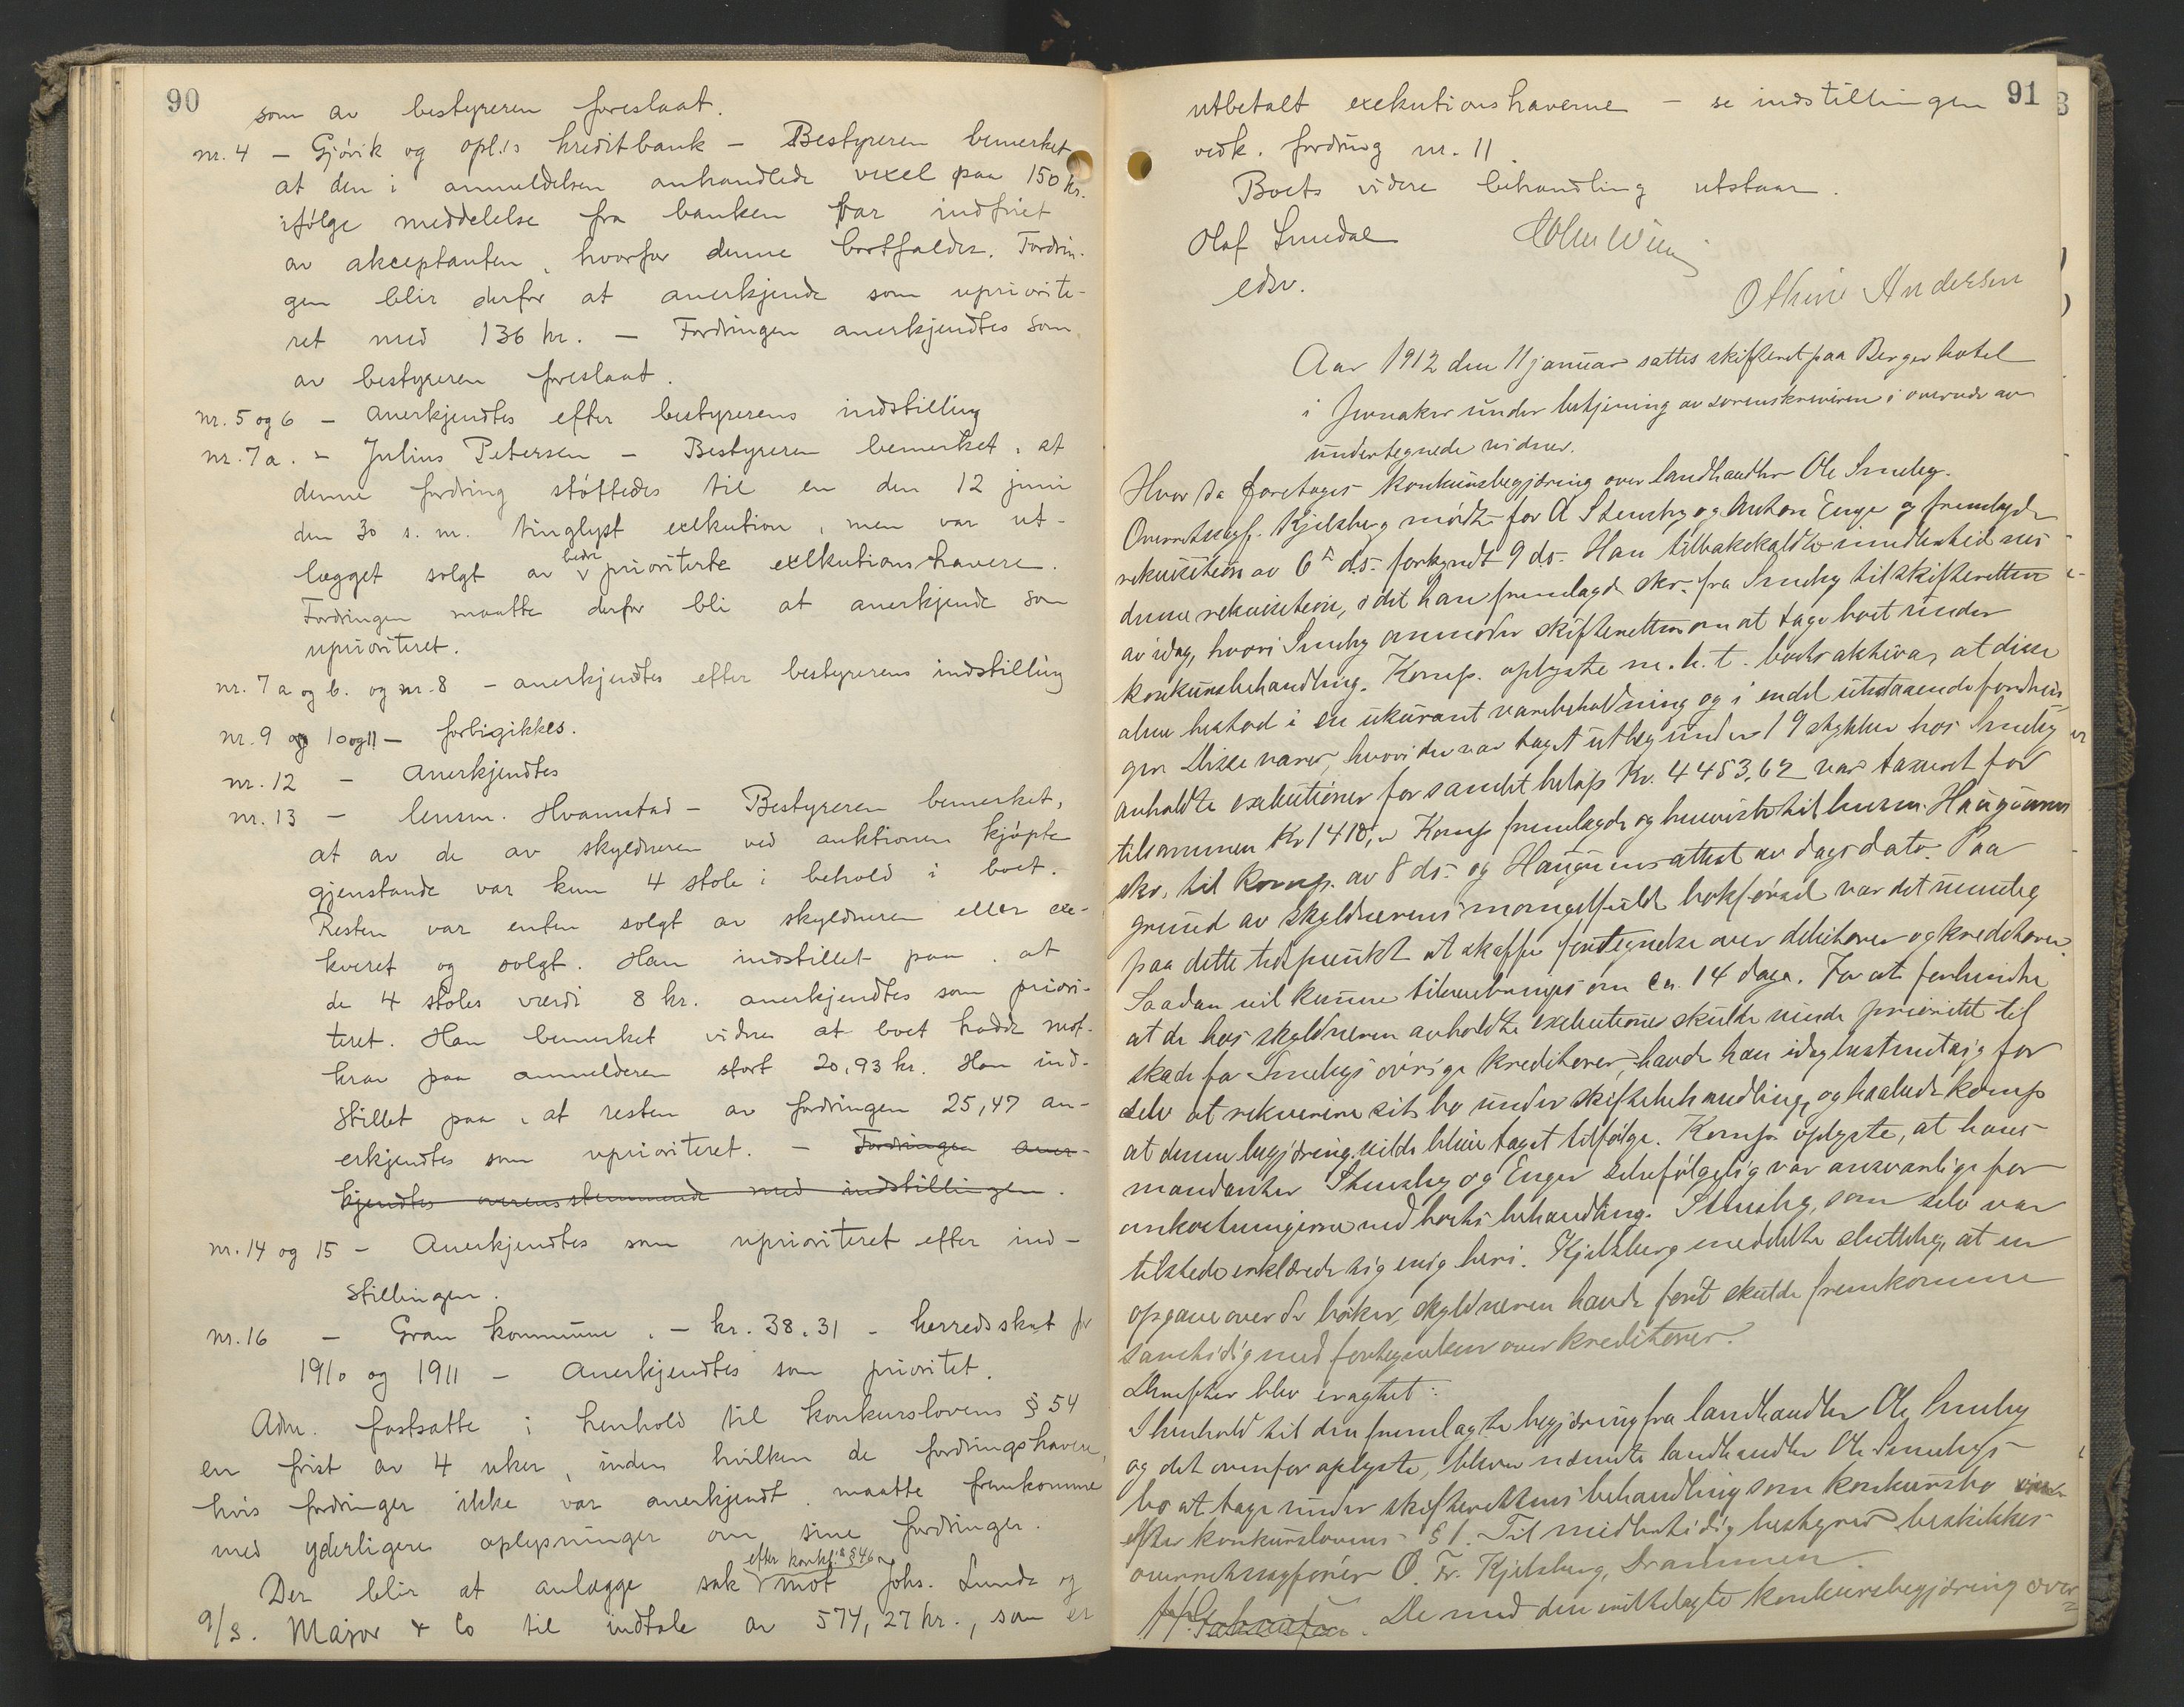 90
som av bestyreren foreslaat.
nr. 4 — Gjövik og opl.s kreditbank — Bestyreren bemerket
at den i anmeldelsen omhandlede vexel paa 150 kr.
ifölge meddelelse fra banken var indfriet
av akceptanten, hvorfor denne bortfalder. Fordrin-
gen blir derfor at anerkjende som uprioritе-
ret med 136 kr. — Fordringen anerkjendtes som
av bestyreren foreslaat.
nr. 5 og 6 — anerkjendtes efter bestyrerens indstilling
nr. 7a. — Julius Petersen — Bestyreren bemerket, at
denne fordring stöttedes til en den 12 juni
den 30 s. m. tinglyst exekution, men var ut-
lægget solgt av bedre prioriterte exekutionshavere.
Fordringen maatte derfor bli at anerkjende som
uprioritert.
nr. 7a og b. og nr. 8 — anerkjendtes efter bestyrerens indstilling
nr. 9 og 10 og 11 — forbigikkes.
nr. 12 — Anerkjendtes
nr. 13 — lensm. Hvamstad — Bestyreren bemerket,
at av de av skyldneren ved auktionen kjöpte
gjenstande var kun 4 stole i behold i boet.
Resten var enten solgt av skyldneren eller exe-
kveret og solgt. Han indstillet paa, at
de 4 stoles værdi 8 kr. anerkjendtes som priori-
teret. Han bemerket videre at boet hadde mot-
krav paa anmelderen stort 20,93 kr. Han ind-
stillet paa, at resten av fordringen 25,47 an-
erkjendtes som uprioriteret. — Fordringen aner-
kjendtes overensstemmende med indstillingen.
nr. 14 og 15 — Anerkjendtes som uprioriteret efter ind-
stillingen.
nr. 16 — Gran kommune. — kr. 38.31 — herredsskat for
1910 og 1911 — Anerkjendtes som prioritet.
Adm. fastsatte i henhold til konkurslovens § 54
en frist av 4 uker, inden hvilken de fordringshavere,
hvis fordringer ikke var anerkjendt, maatte fremkomme
med yderligere oplysninger om sine fordringer.
efter konkl.s § 46
Der blir at anlægge sak mot Johs. Lunde og
9/3. Major & Co til indtale av 574,27 kr., som er
91
utbetalt exekutionshaverne — se indstillingen
vedk. fordring nr. 11.
Boets videre behandling utstaar.
Olaf Smedal
edsv.
Othine Andersen
Aar 1912 den 11 januar sattes skifteret paa Berger hotel
i Jevnaker under betjening av sorenskriveren i overvær av
undertegnede vidner.
Hvor da foretoges konkursbegjæring over landhandler Ole Smeby.
Overretssagf. Kjelsberg mödte for A Stensby og Anton Enger og fremlagde
rekvisition av 6te ds. forkyndt 9 ds. Han tilbakekaldte imidlertid nu
denne rekvisition, idet han fremlagde skr. fra Smeby til skifteretten
av idag, hvori Smeby anmoder skifteretten om at tage boet under
konkursbehandling. Komp. oplyste m. h. t. boets aktiva, at disse
alene bestod i en ukurant varebeholdning og i endel utestaaende fordrin-
ger. Disse varer, hvori der var taget utlæg under 19 stykker hos Smeby
avholdte exekutioner for samlet belöp Kr. 4453,62 var taxeret for
tilsammen Kr 1410,- Komp fremlagde og henviste til lensm. Haugums
skr. til komp. av 8 ds. og Haugums attest av dags dato. Paa
grund av skyldnerens mangelfulde bokförsel var det umulig
paa dette tidspunkt at skaffe fortegnelse over debitorer og kreditorer.
Saadan vil kunne tilveiebringes om ca. 14 dage. For at forhindre
at de hos skyldneren avholdte exekutioner skulde vinde prioritet til
skade for Smebys övrige kreditorer, havde han idag bestemt sig for
selv at rekvirere sit bo under skiftebehandling, og paastod komp
at denne begjæring vilde blive taget tilfölge. Komp. oplyste, at hans
mandanter Stensby og Enger selvfölgelig var ansvarlige for
omkostningerne ved boets behandling. Stensby, som selv var
tilstede erklærede sig enig heri. Kjelsberg meddelte sluttelig, at en
opgave over de böker, skyldneren havde fört skulde fremkomme
samtidig med fortegnelsen over kreditorer.
Derefter blev eragtet:
I henhold til den fremlagte begjæring fra landhandler Ole Smeby
og det ovenfor oplyste, bliver nævnte landhandler Ole Smebys
bo at tage under skifterettens behandling som konkursbo
efter konkurslovens § 1. Til midlertidig bestyrer beskikkes
overretssagförer O. Fr. Kjelsberg, Drammen.
De med den indkaldte konkursbegjæring over-